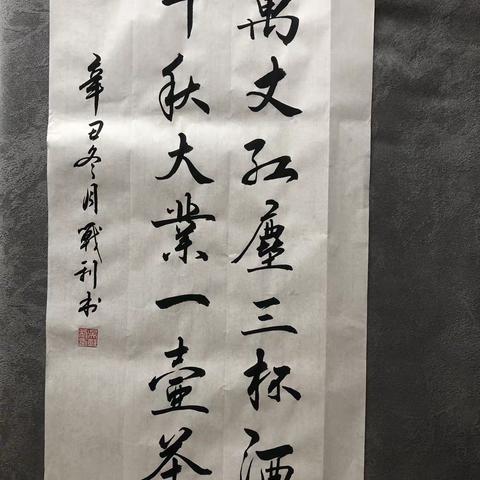 萬丈红塵三杯酒
千秋大業一壺茶
辛丑冬月戰利書